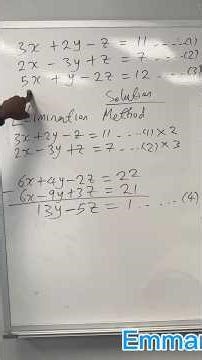 3x + 2y - z = 11 .... (1)
2x - 3y + z = 7 .... (2)
5x + y - 2z = 12 ... (3)
Solution
imination Method
3x + 2y - z = 11 .... (1) x 2
2x - 3y + z = 7 .... (2) x 3
6x + 4y - 2z = 22
- 6x - 9y + 3z = 21
13y - 5z = 1 ..... (4)
Emma